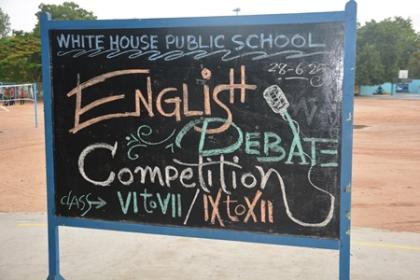 WHITE HOUSE PUBLIC SCHOOL
28-6-25
ENGLISH
DEBATE
Competition
class → VI to VII / IX to XII